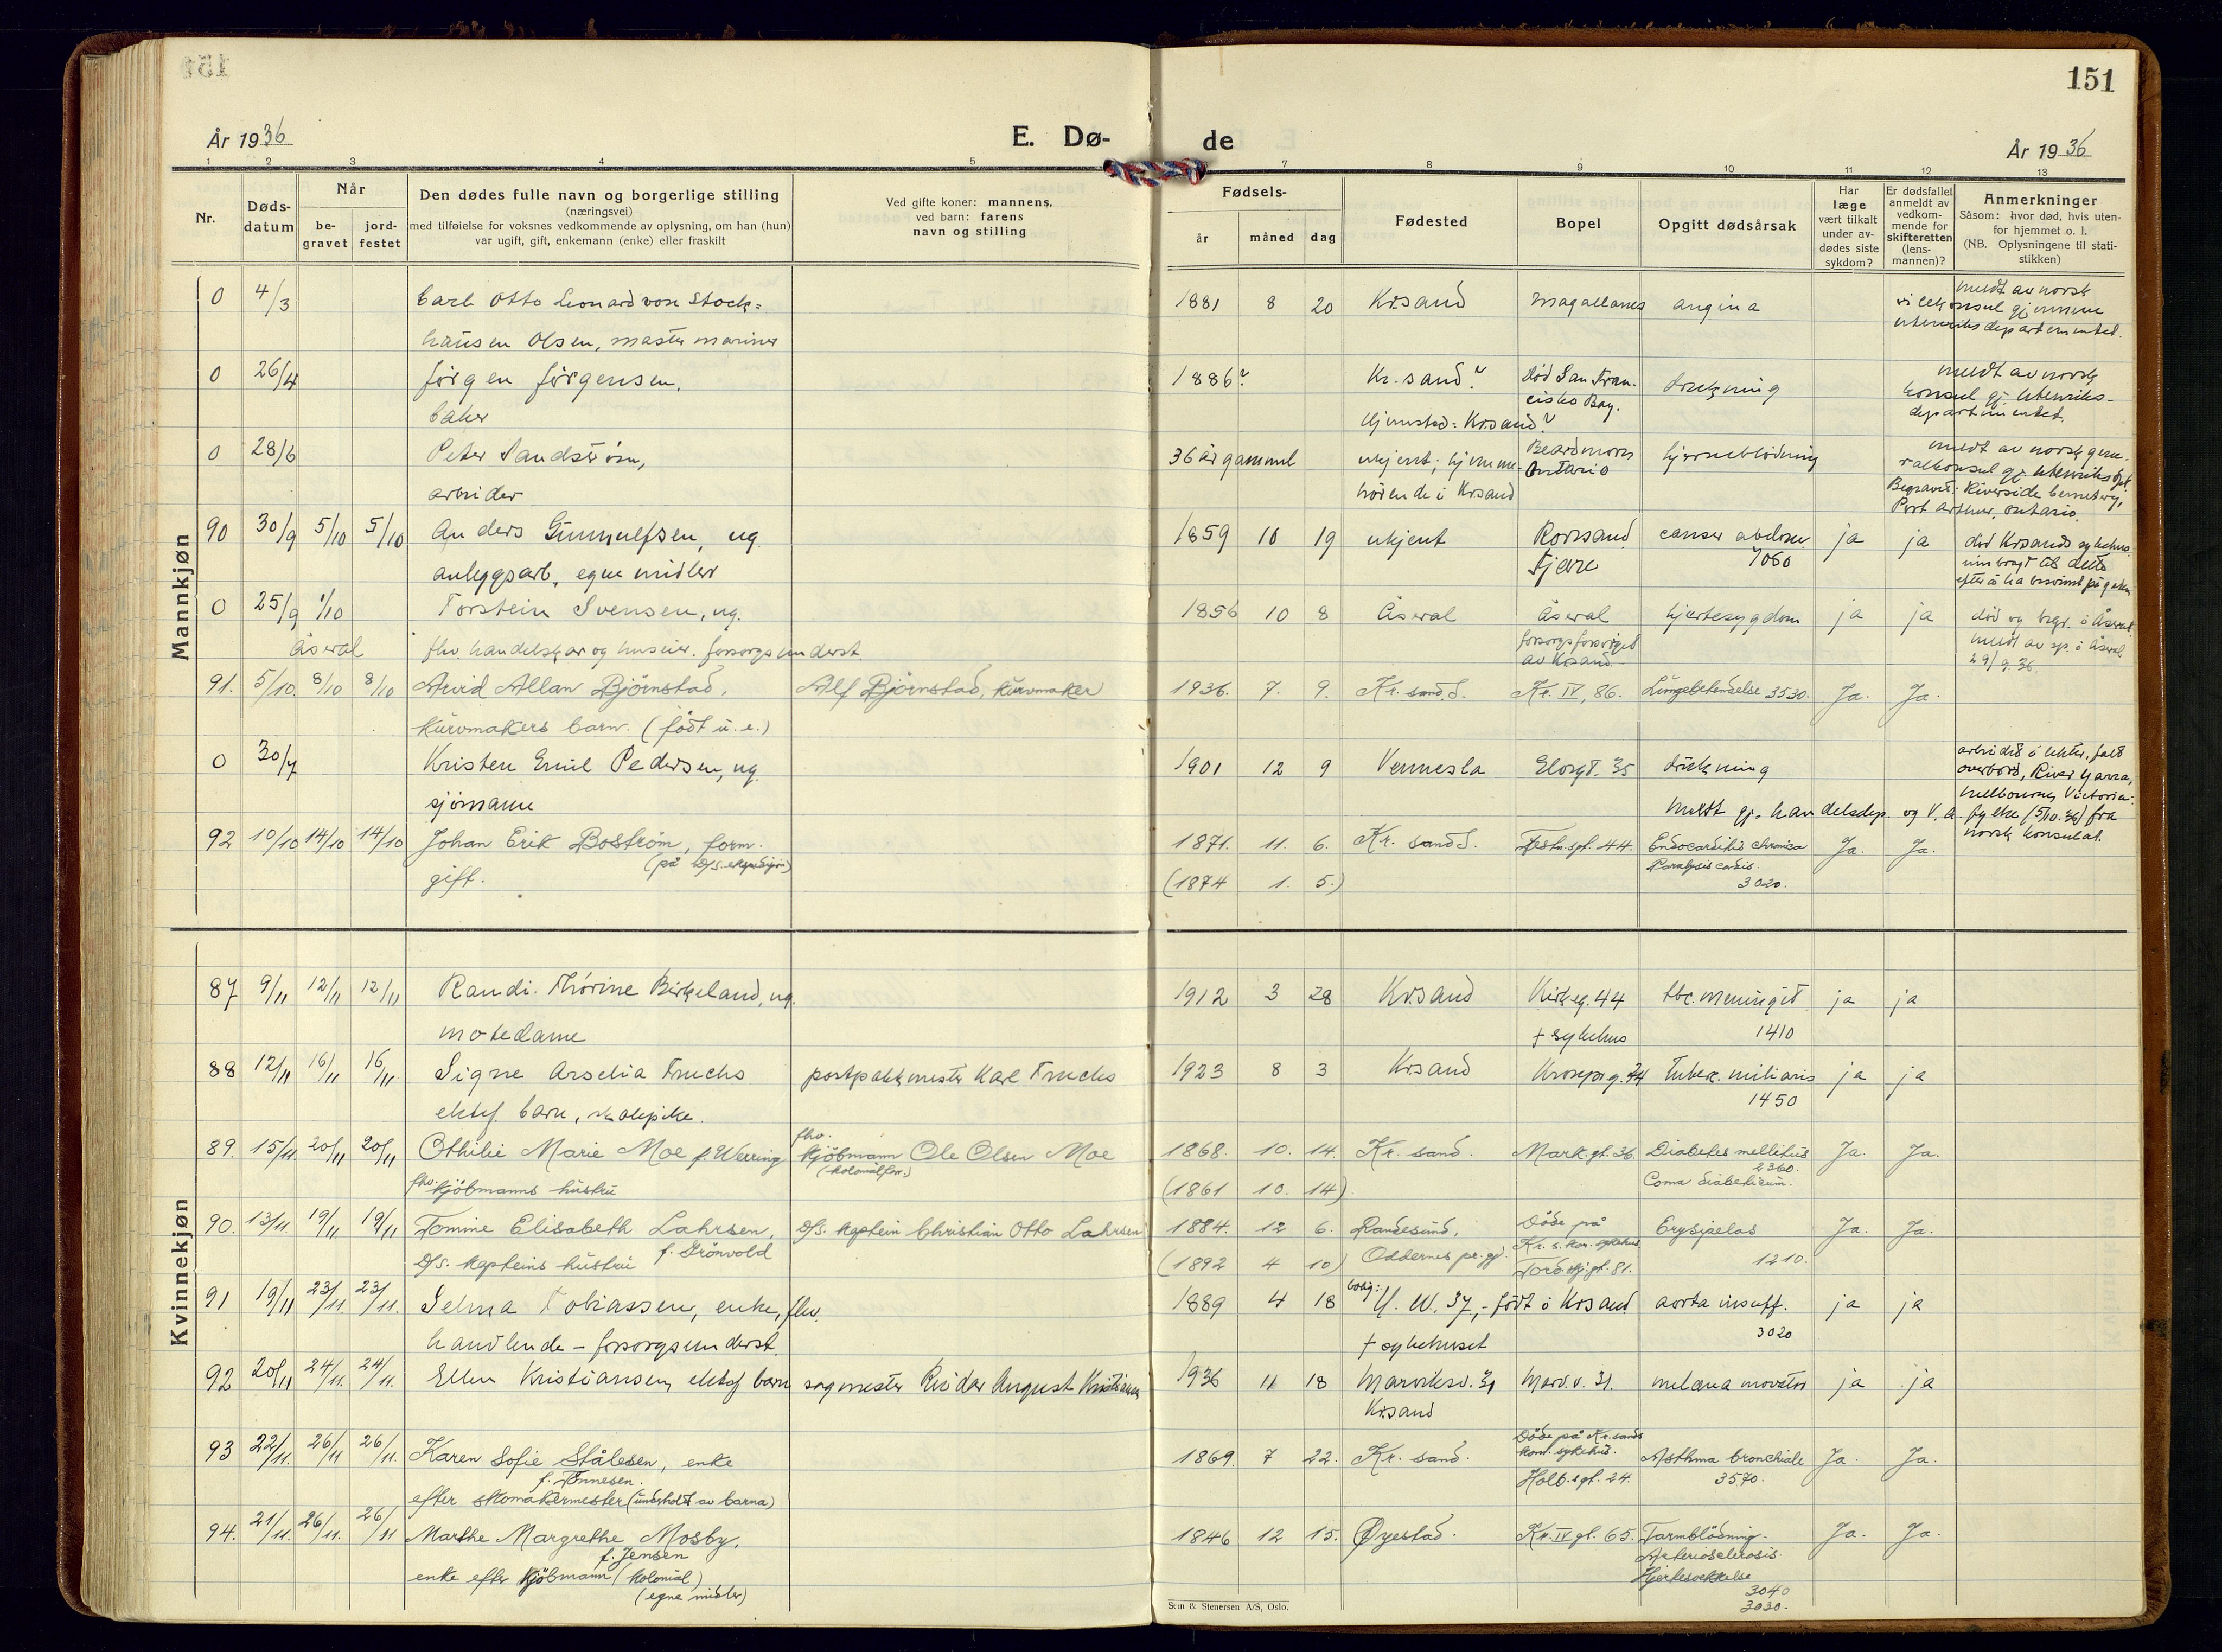 151
År 1936
E. Dø-
de
År 1936
1 2 3 4 5 7 8 9 10 11 12 13
Nr.
Døds-
datum
Når
be-
gravet
jord-
festet
Den dødes fulle navn og borgerlige stilling
(næringsvei)
med tilføielse for voksnes vedkommende av oplysning, om han (hun)
var ugift, gift, enkemann (enke) eller fraskilt
Ved gifte koner: mannens,
ved barn: farens
navn og stilling
Fødsels-
år måned dag
Fødested
Bopel
Opgitt dødsårsak
Har
læge
vært tilkalt
under av-
dødes siste
sykdom?
Er dødsfallet
anmeldt av
vedkom-
mende for
skifteretten
(lens-
mannen)?
Anmerkninger
Såsom: hvor død, hvis uten-
for hjemmet o. l.
(NB. Oplysningene til stati-
stikken)
Mannkjøn
0 4/3 Carl Otto Leonard von Stock= 1881 8 20 Kr.sand Magallanes angina meldt av norsk
hausen Olsen, master mariner visekonsul gjennem
utenriksdepartementet.
0 26/4 Jörgen Jörgensen, 1886? Kr.sand? död San Fran- drukning meldt av norsk
baker cisko Bay. konsul gj. utenriks-
Hjemsted: Kr.sand? departementet.
0 28/6 Peter Sandström, 36 år gammel ukjent; hjemme- Beardmore hjerneblödning meldt av norsk gene-
arbeider hörende i Kr.sand Ontario ralkonsul gj. utenriksdpt.
Begravet: Riverside Cemetery,
Port Arthur, Ontario.
90 30/9 5/10 5/10 Anders Gunnulfsen, ug. 1859 10 19 ukjent ja ja död Kr.sands sykehus
anleggsarb., egne midler Fjære
0 25/9 1/10 Torstein Svensen, ug. 1856 10 8 Åseral Åseral hjertesygdom ja ja död og begr. i Åseral
Åseral fhv. handelskar og huseier. forsorgsunderst. forsorgsforsörget meldt av sp. i Åseral
av Kr.sand.- 29/9.36
91. 5/10. 8/10 8/10 Arvid Allan Björnstad, Alf Björnstad, kurvmaker 1936. 7. 9. Kr.sand.S. Kr. IV, 86. Lungebetendelse 3530. Ja. Ja.
kurvmakers barn. (födt u. e.)
0 30/7 Kristen Emil Pedersen, ug. 1901 12 9 Vennesla Elvegt. 35 drukning arbeidet i lekter, falt
sjömann overbord, River Yarra,
Melbourne, Victoria.
meldt gj. handelsdep. og V. A. fylke (5/10.36) fra
norsk konsulat.
92 10/10 14/10 14/10 Johan Erik Boström, form. 1871. 11. 6. Kr.sand S. Festn.gt. 44. Endocarditis chronica Ja. Ja.
(på D/S. ekspedisjon) Paralysis cordis.
gift. (1874 1. 5.) 3020.
Kvinnekjøn
87 9/11 12/11 12/11 Randi Thorine Birkeland, ug. 1912 3 28 Kr.sand Kirkeg. 44 tbc. meningit ja ja
motedame + sykehus 1410
88 12/11 16/11 16/11 Signe Arselia postpakkmester Karl 1923 8 3 Kr.sand Tuberc. miliaris ja ja
ektef. barn, skolepike. 1450
89. 15/11. 20/11 20/11 Othilie Marie Moe f. Werring fhv. kjöbmann Ole Olsen Moe 1868. 10. 14. Kr. sand. Mark.gt. 36. Diabetes mellitus Ja. Ja.
(kolonialforr.) 2360.
fhv. kjöbmanns hustru (1861 10. 14) Coma diabeticum.
90. 13/11. 19/11 19/11 Tomine Elisabeth Lahrsen, D/S. kaptein Christian Otto Lahrsen 1884. 12 6. Randesund, Döde på Erysipelas Ja. Ja.
f. Grönvold Kr. s. kom. sykehus
D/S. kapteins hustru (1892 4 10) Oddernes pr.gj. Tordskj.gt. 81. 1210.
91 19/11 23/11. 23/11. Selma Tobiassen, enke, fhv. 1889 4 18 bolig: H. W. 37,- födt i Kr.sand aorta insuff. ja ja
handlende – forsorgsunderst. + sykehuset 3020
92 20/11 24/11. 24/11. Ellen Kristiansen, ektef barn sagmester Reidar August Kristiansen 1936 11 18 Marviksv. 31 Marv.v. 31. melæna ja ja
Kr.sand
93 22/11. 26/11 26/11. Karen Sofie Stålesen, enke 1869. 7 22. Kr. sand. Döde på Kr.sands Asthma bronchiale Ja. Ja.
f. Tönnesen. kom. sykehus. 3570.
efter skomakermester (underholdt av barna) Holb.sgt. 24.
94. 21/11. 26/11. 26/11 Marthe Margrethe Mosby, 1846 12 15. Øyestad. Kr. IV gt. 65. Tarmblödning. Ja. Ja.
f. Jensen Arteriosclerosis.
enke efter kjöbmann (kolonial) Hjertesvekkelse
(egne midler) 3040
3030.
Sem & Stenersen A/S, Oslo.